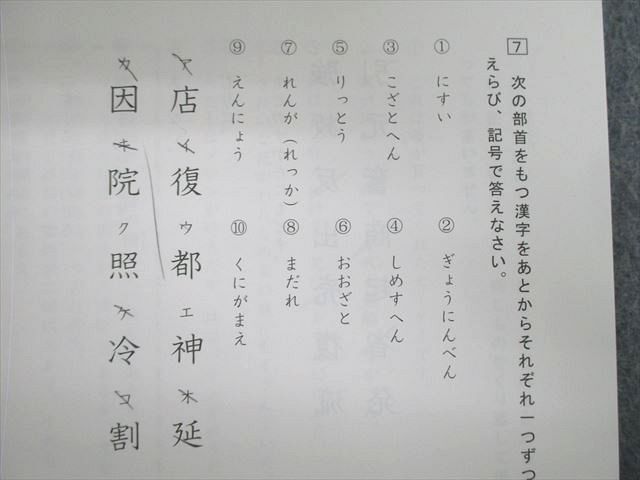 7 次の部首をもつ漢字をあとからそれぞれ一つずつ
えらび、記号で答えなさい。
① にすい ② ぎょうにんべん
③ こざとへん ④ しめすへん
⑤ りっとう ⑥ おおざと
⑦ れんが（れっか） ⑧ まだれ
⑨ えんにょう ⑩ くにがまえ
ア 店 イ 復 ウ 都 エ 神 オ 延
カ 因 キ 院 ク 照 ケ 冷 コ 割